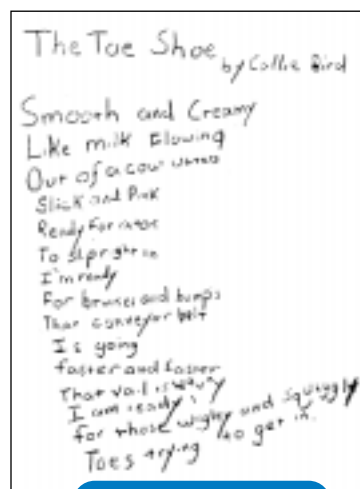 The Toe Shoe
by Callie Bird
Smooth and Creamy
Like milk Flowing
Out of a cow
Slick and Pink
Ready For
To slip right in
I'm ready
For bruises and bumps
That conveyor belt
Is going
faster and faster
That is
I am ready
for those wigly and squiggly
Toes trying to get in.